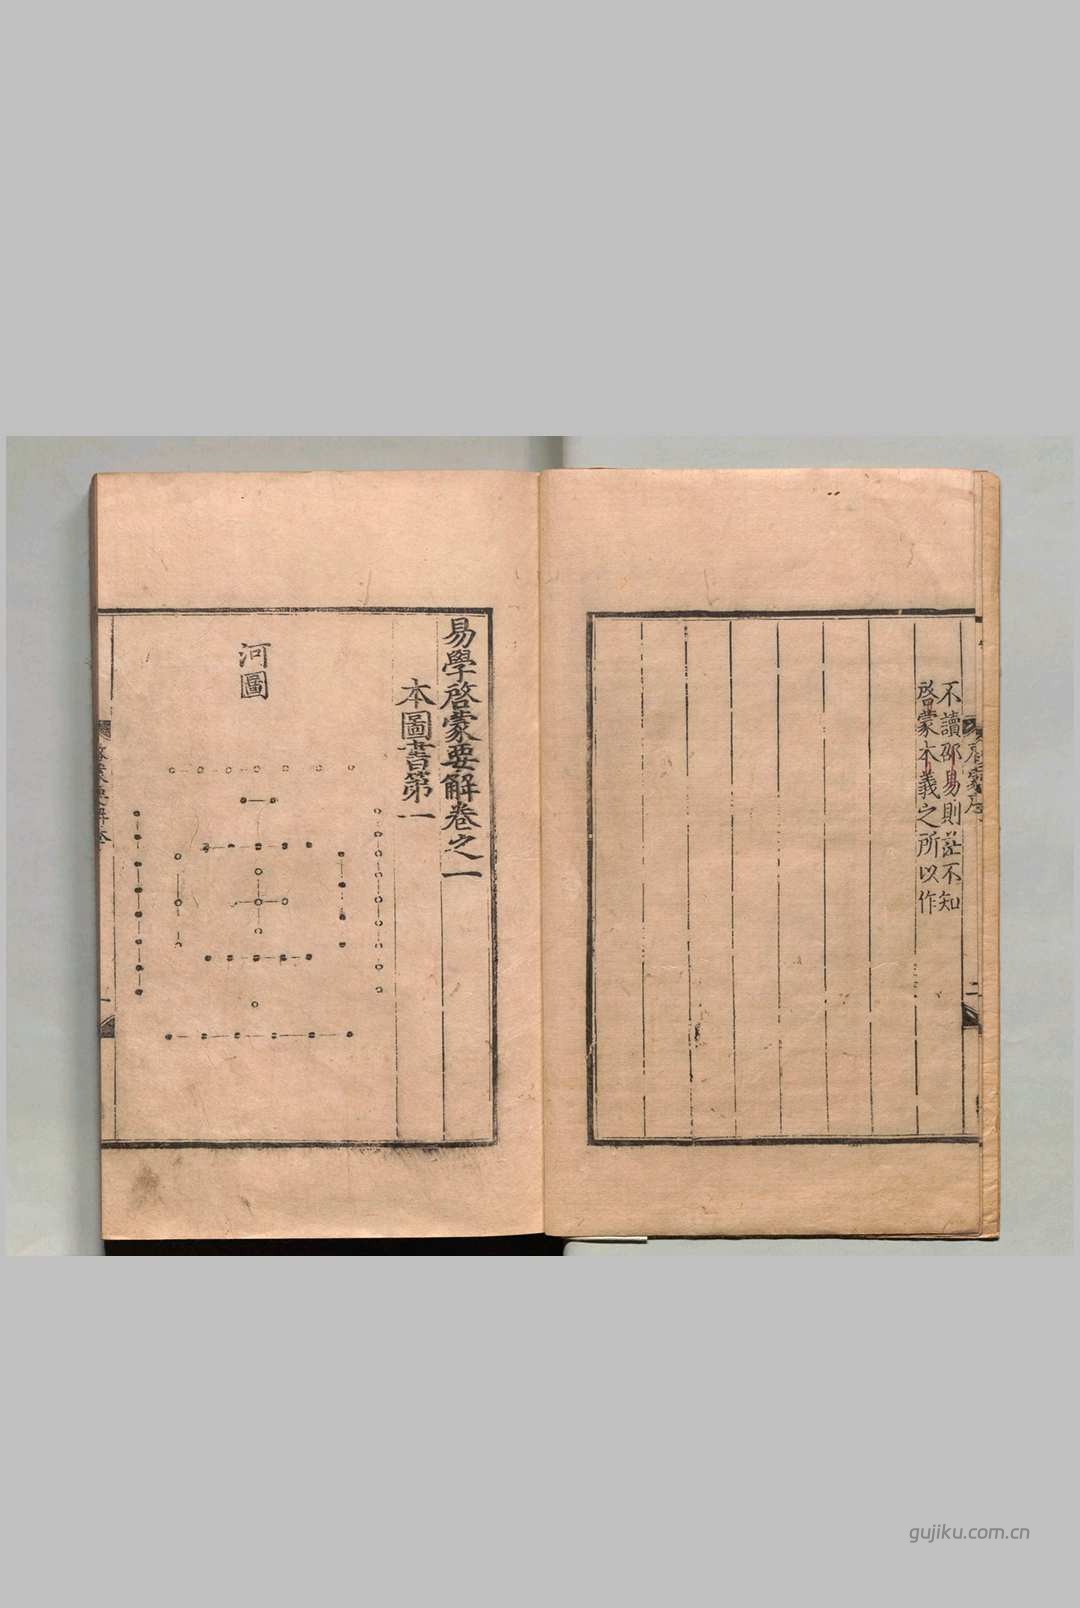 不讀邵易則茫不知
啓蒙本義之所以作
啓蒙序
二
易學啓蒙要解卷之一
本圖書第一
河圖
啓蒙要解卷
一
gujiku.com.cn